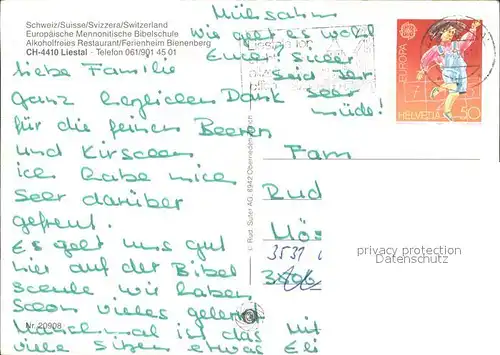 Schweiz/Suisse/Svizzera/Switzerland
Europäische Mennonitische Bibelschule
Alkoholfreies Restaurant/Ferienheim Bienenberg
CH-4410 Liestal - Telefon 061/901 45 01
Mühsahm
Wie geht es wohl
Euch? sicer
seid Ihr
seer
müde!
liebe Familie
ganz herzlichen Dank
für die feinen Beeren
und Kirschen
ich habe mich
seer darüber
gefreut.
Es geht uns gut
hier auf der Bibel
scule wir haben
scon vieles gelernt
Manchmal ist das
viele Sitzen etwas
Mit
Eli
EUROPA
HELVETIA 50
Fam
Rud
Mös
3531
© Rud. Suter AG, 8942 Oberrieden
privacy protection
Datenschutz
Nr. 20908